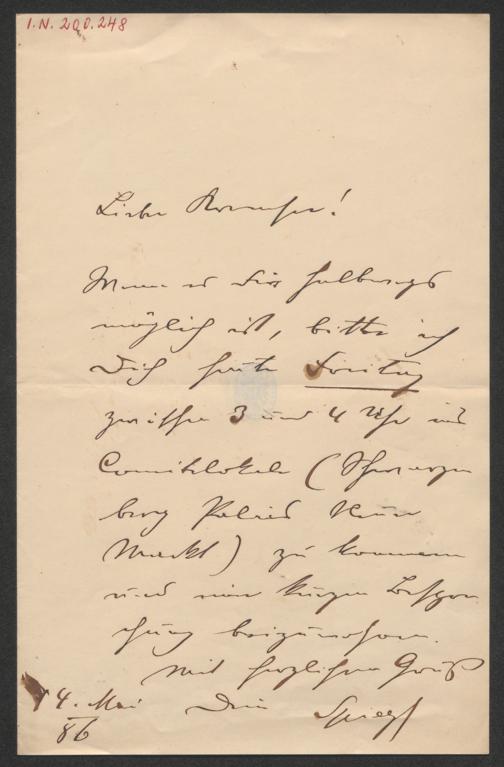 I.N. 200.248
Lieber !
Wenn es Dir halbwegs
möglich ist, bitte ich
Dich heute Freitag
zwischen 3 und 4 Uhr ins
Comitélokale (Schwarzen
berg Palais Neuer
Markt) zu kommen
und einer kurzen Bespre
chung beizuwohnen.
Mit herzlichem Gruß
14. Mai Dein Spiegl
86